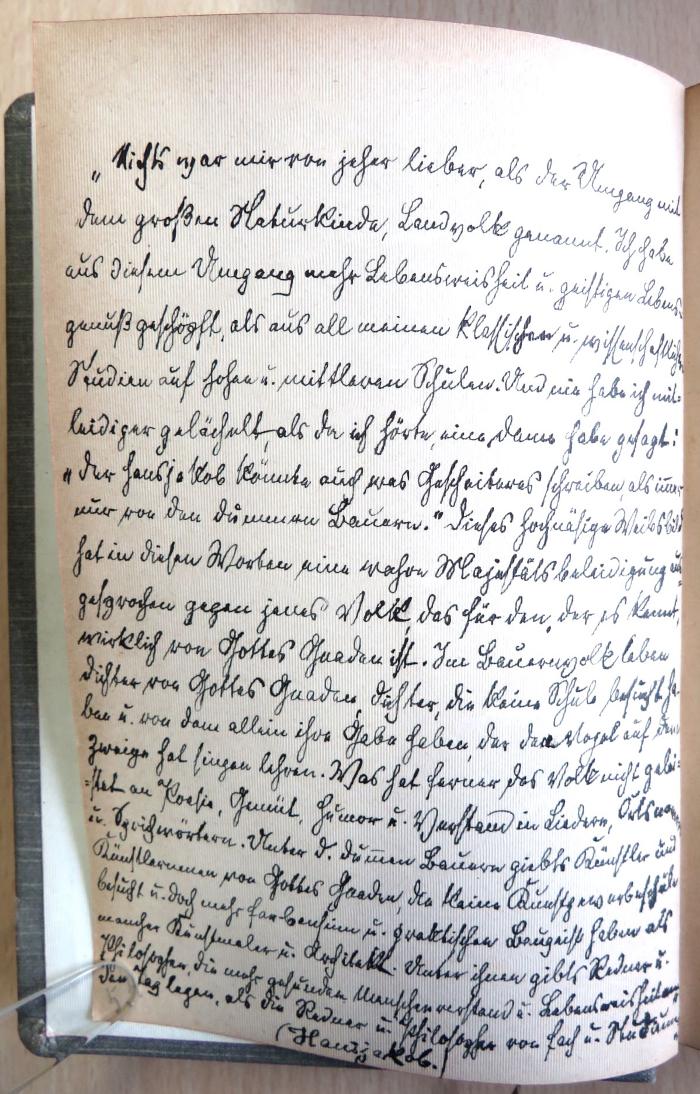 „Nichts war mir von jeher lieber, als der Umgang mit
dem großen Naturkinde, Landvolk genannt. Ich habe
aus diesem Umgang mehr Lebensweisheit u. geistigen Lebens-
genuß geschöpft, als aus all meinen klassischen u. wissenschaftlichen
Studien auf hohen u. mittleren Schulen. Und nie habe ich mit-
leidiger gelächelt, als da ich hörte, eine Dame habe gesagt:
„der Hansjakob könnte auch was Gescheiteres schreiben, als immer
nur von den dummen Bauern." Dieses hochnäsige Weibsbild
hat in diesen Worten eine wahre Majestätsbeleidigung aus-
gesprochen gegen jenes Volk, das für den, der es kennt,
wirklich von Gottes Gnaden ist. Im Bauernvolk leben
Dichter von Gottes Gnaden, Dichter, die keine Schule besucht ha-
ben u. von dem allein ihre Gabe haben, der den Vogel auf dem
Zweige hat singen lehren. Was hat ferner das Volk nicht gelei-
=stet an Poesie, Gemüt, Humor u. Verstand in Liedern,
u. Sprichwörtern. Unter d. dum̅en Bauern giebts Künstler und
Künstlerinnen von Gottes Gnaden, die keine Kunstgewerbeschule
besucht u. doch mehr Farbensinn u. praktischen Baugeist haben als
mancher Kunstmaler u. Architekt. Unter ihnen gibts Redner u.
Philosophen, die mehr gesunden Menschenverstand u. Lebensweisheit an
den Tag legen, als die Redner u. Philosophen von Fach u. Studium."
(Hansjakob.)